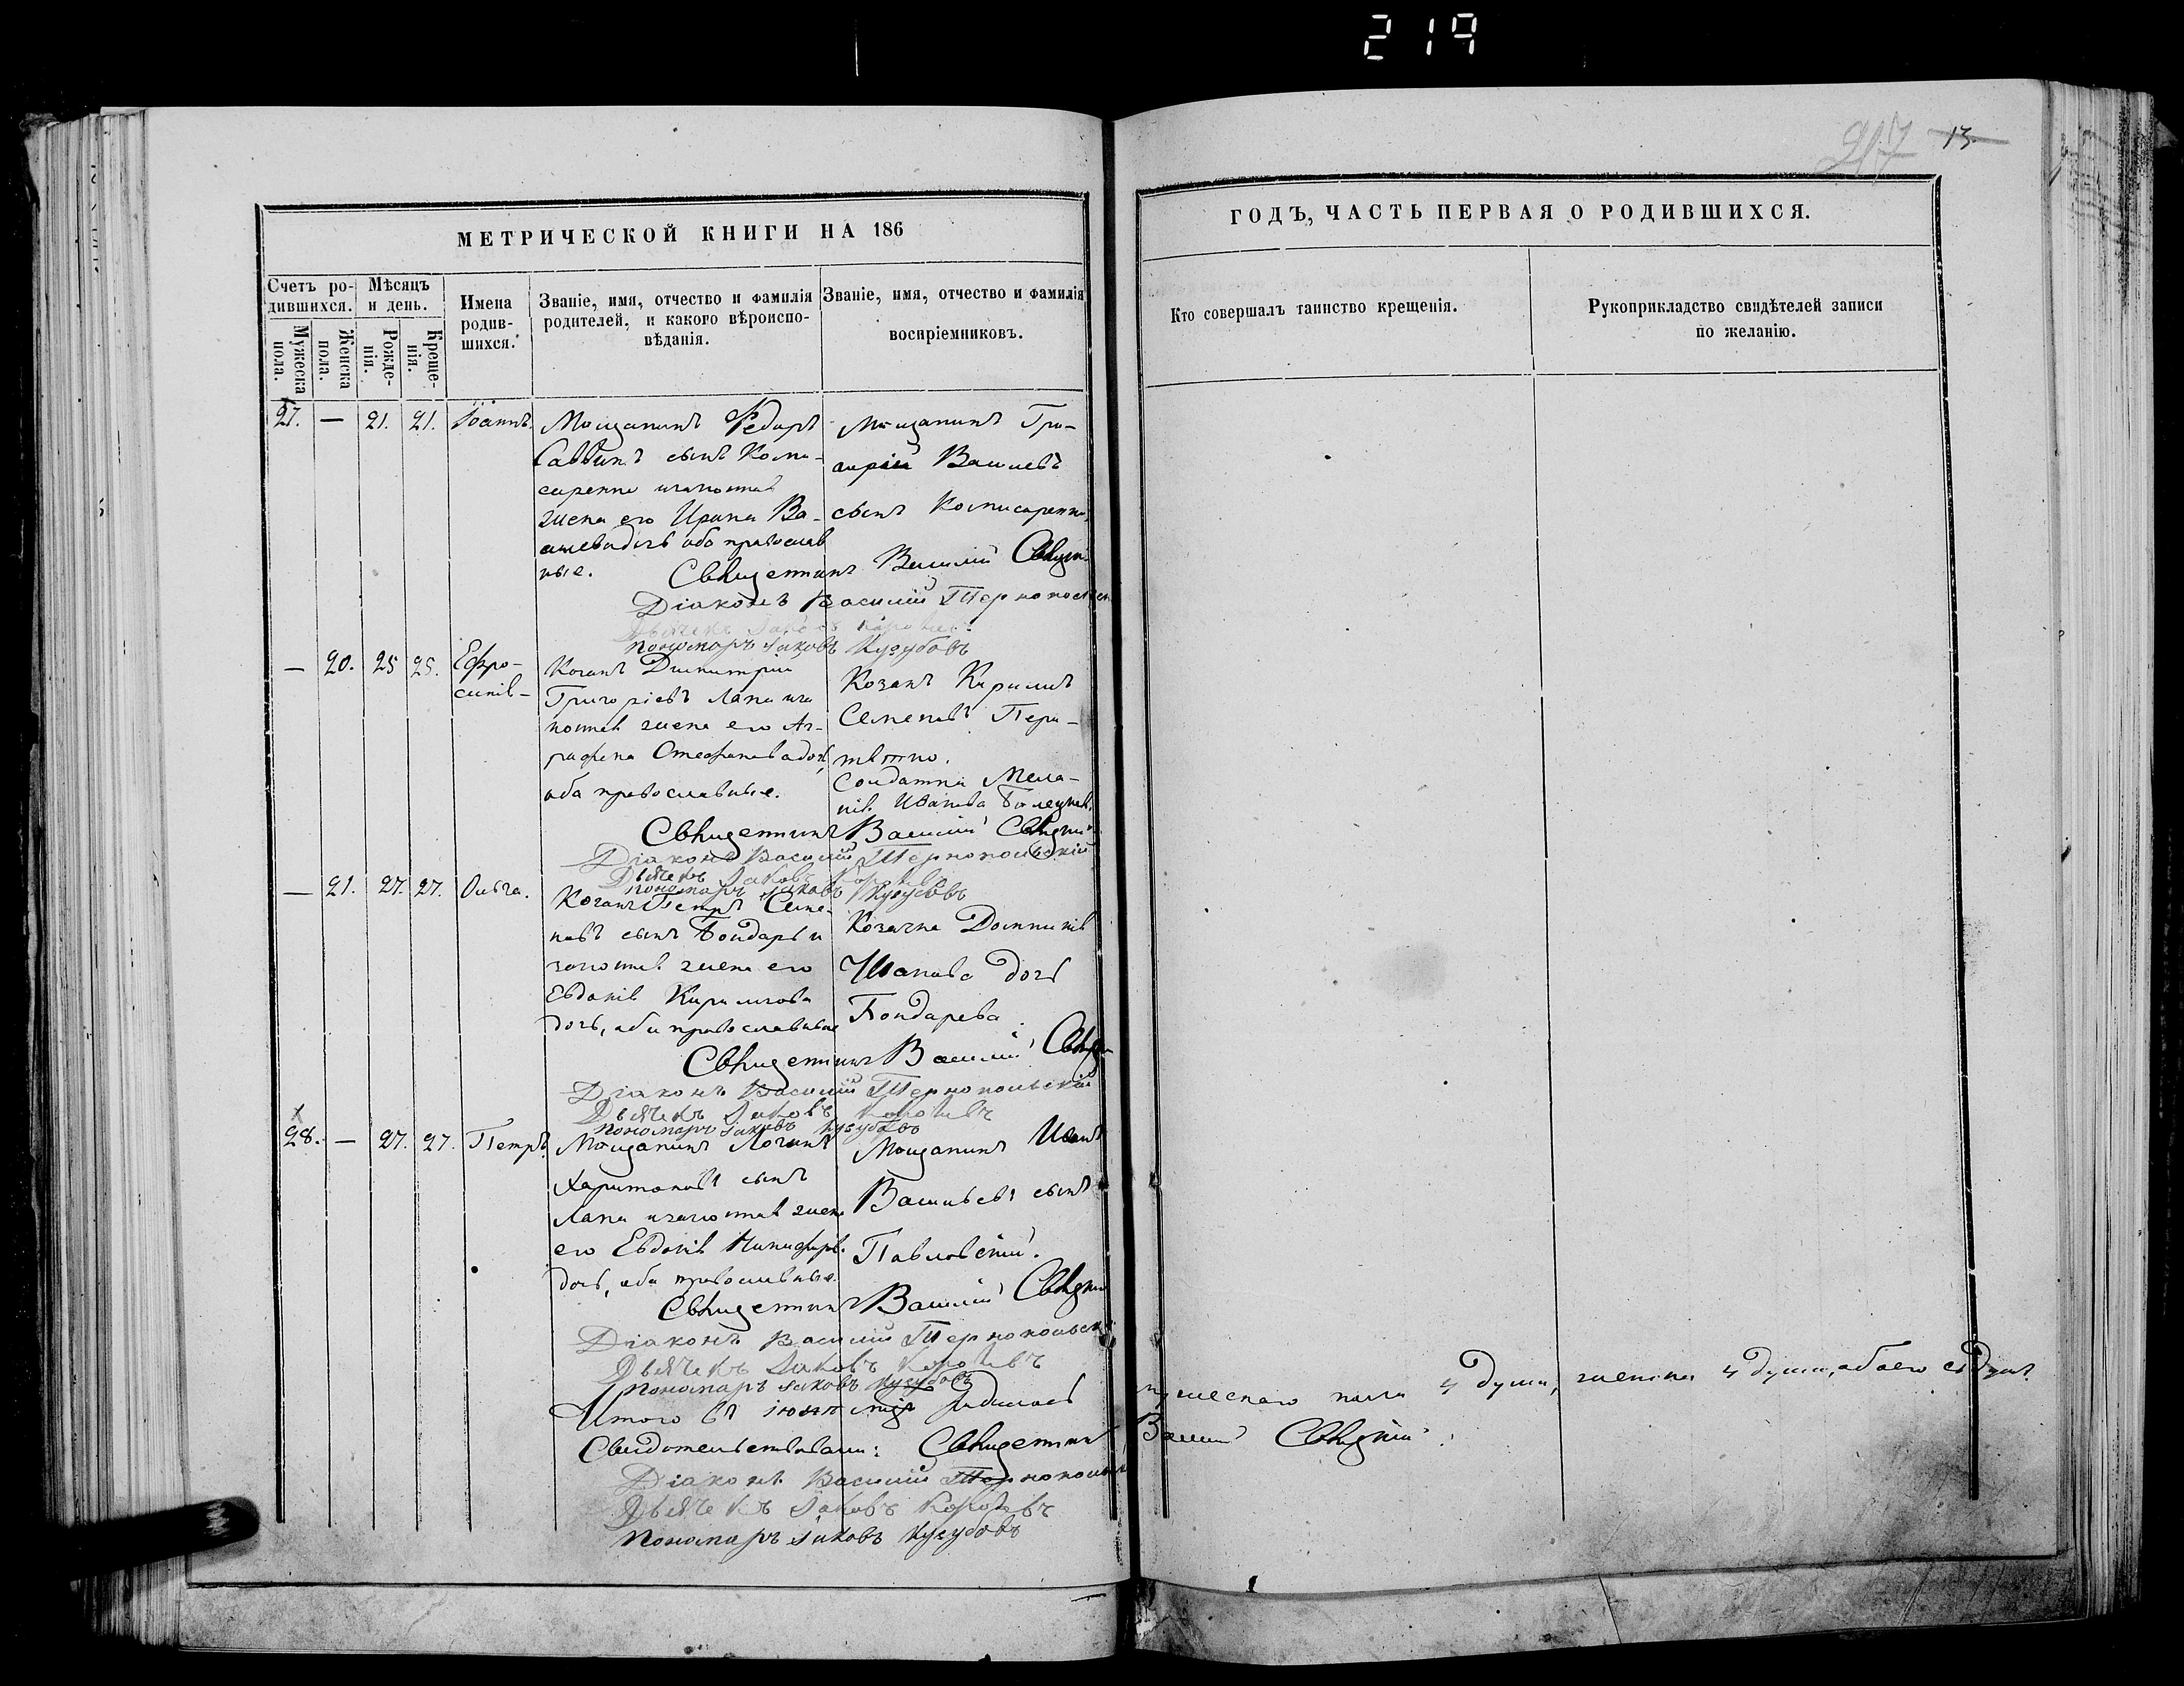 219
217 13
МЕТРИЧЕСКОЙ КНИГИ НА 186
ГОДЪ, ЧАСТЬ ПЕРВАЯ О РОДИВШИХСЯ.
Счетъ ро-
дившихся.
Мужеска
пола.
Женска
пола.
Мѣсяцъ
и день.
Рожде-
нія.
Креще-
нія.
Имена
родив-
шихся.
Званіе, имя, отчество и фамилія
родителей, и какого вѣроиспо-
вѣданія.
Званіе, имя, отчество и фамилія
воспріемниковъ.
Кто совершалъ таинство крещенія.
Рукоприкладство свидѣтелей записи
по желанію.
27. — 21. 21. Іоаннъ.
Мѣщанинъ Ѳедоръ
Саввинъ сынъ Коми-
саренко изаконная
жена его Ирина Ва-
силевадочь оба православ
ные.
Мѣщанинъ Гри-
горій Василевъ
сынъ Комисаренко
Священникъ Василій
Діаконъ Василій Тернопольскій
Дьячекъ Іаковъ
Пономарь Іаковъ Кусубовъ
— 20. 25 25. Ефро-
синія
Козакъ Димитрій
Григоріевъ Лапа иза
конная жена его Аг-
рафена Стефановадочь
оба православные.
Козакъ Кирилъ
Семеновъ Пере-
тятко.
Солдатка Мела-
нія Иванова
Священникъ Василій
Діаконъ Василій Тернопольскій
Дьячекъ Іаковъ
Пономарь Іаковъ Кусубовъ
— 21. 27. 27. Ольга.
Козакъ Петръ Семе-
новъ сынъ Бондарь и
законная жена его
Евдокія Кирилова
дочь, оба православные
Козачка Домникія
Иванова дочь
Бондарева
Священникъ Василій
Діаконъ Василій Тернопольскій
Дьячекъ Іаковъ
Пономарь Іаковъ Кусубовъ
28. — 27. 27. Петръ.
Мѣщанинъ Логинъ
Харитоновъ сынъ
Лапа изаконная жена
его Евдокія Никифор.
дочь, оба православные.
Мѣщанинъ Иванъ
Васильевъ сынъ
Павловскій.
Священникъ Василій
Діаконъ Василій Тернопольскій
Дьячекъ Іаковъ
Пономарь Іаковъ Кусубовъ
Итого въ іюнѣ м-цѣ родилось мужескаго пола 4 души, женска 4 души, обоего 8 душъ.
Свидѣтельствовали: Священникъ Василій
Діаконъ Василій Тернопольскій
Дьячекъ Іаковъ
Пономарь Іаковъ Кусубовъ